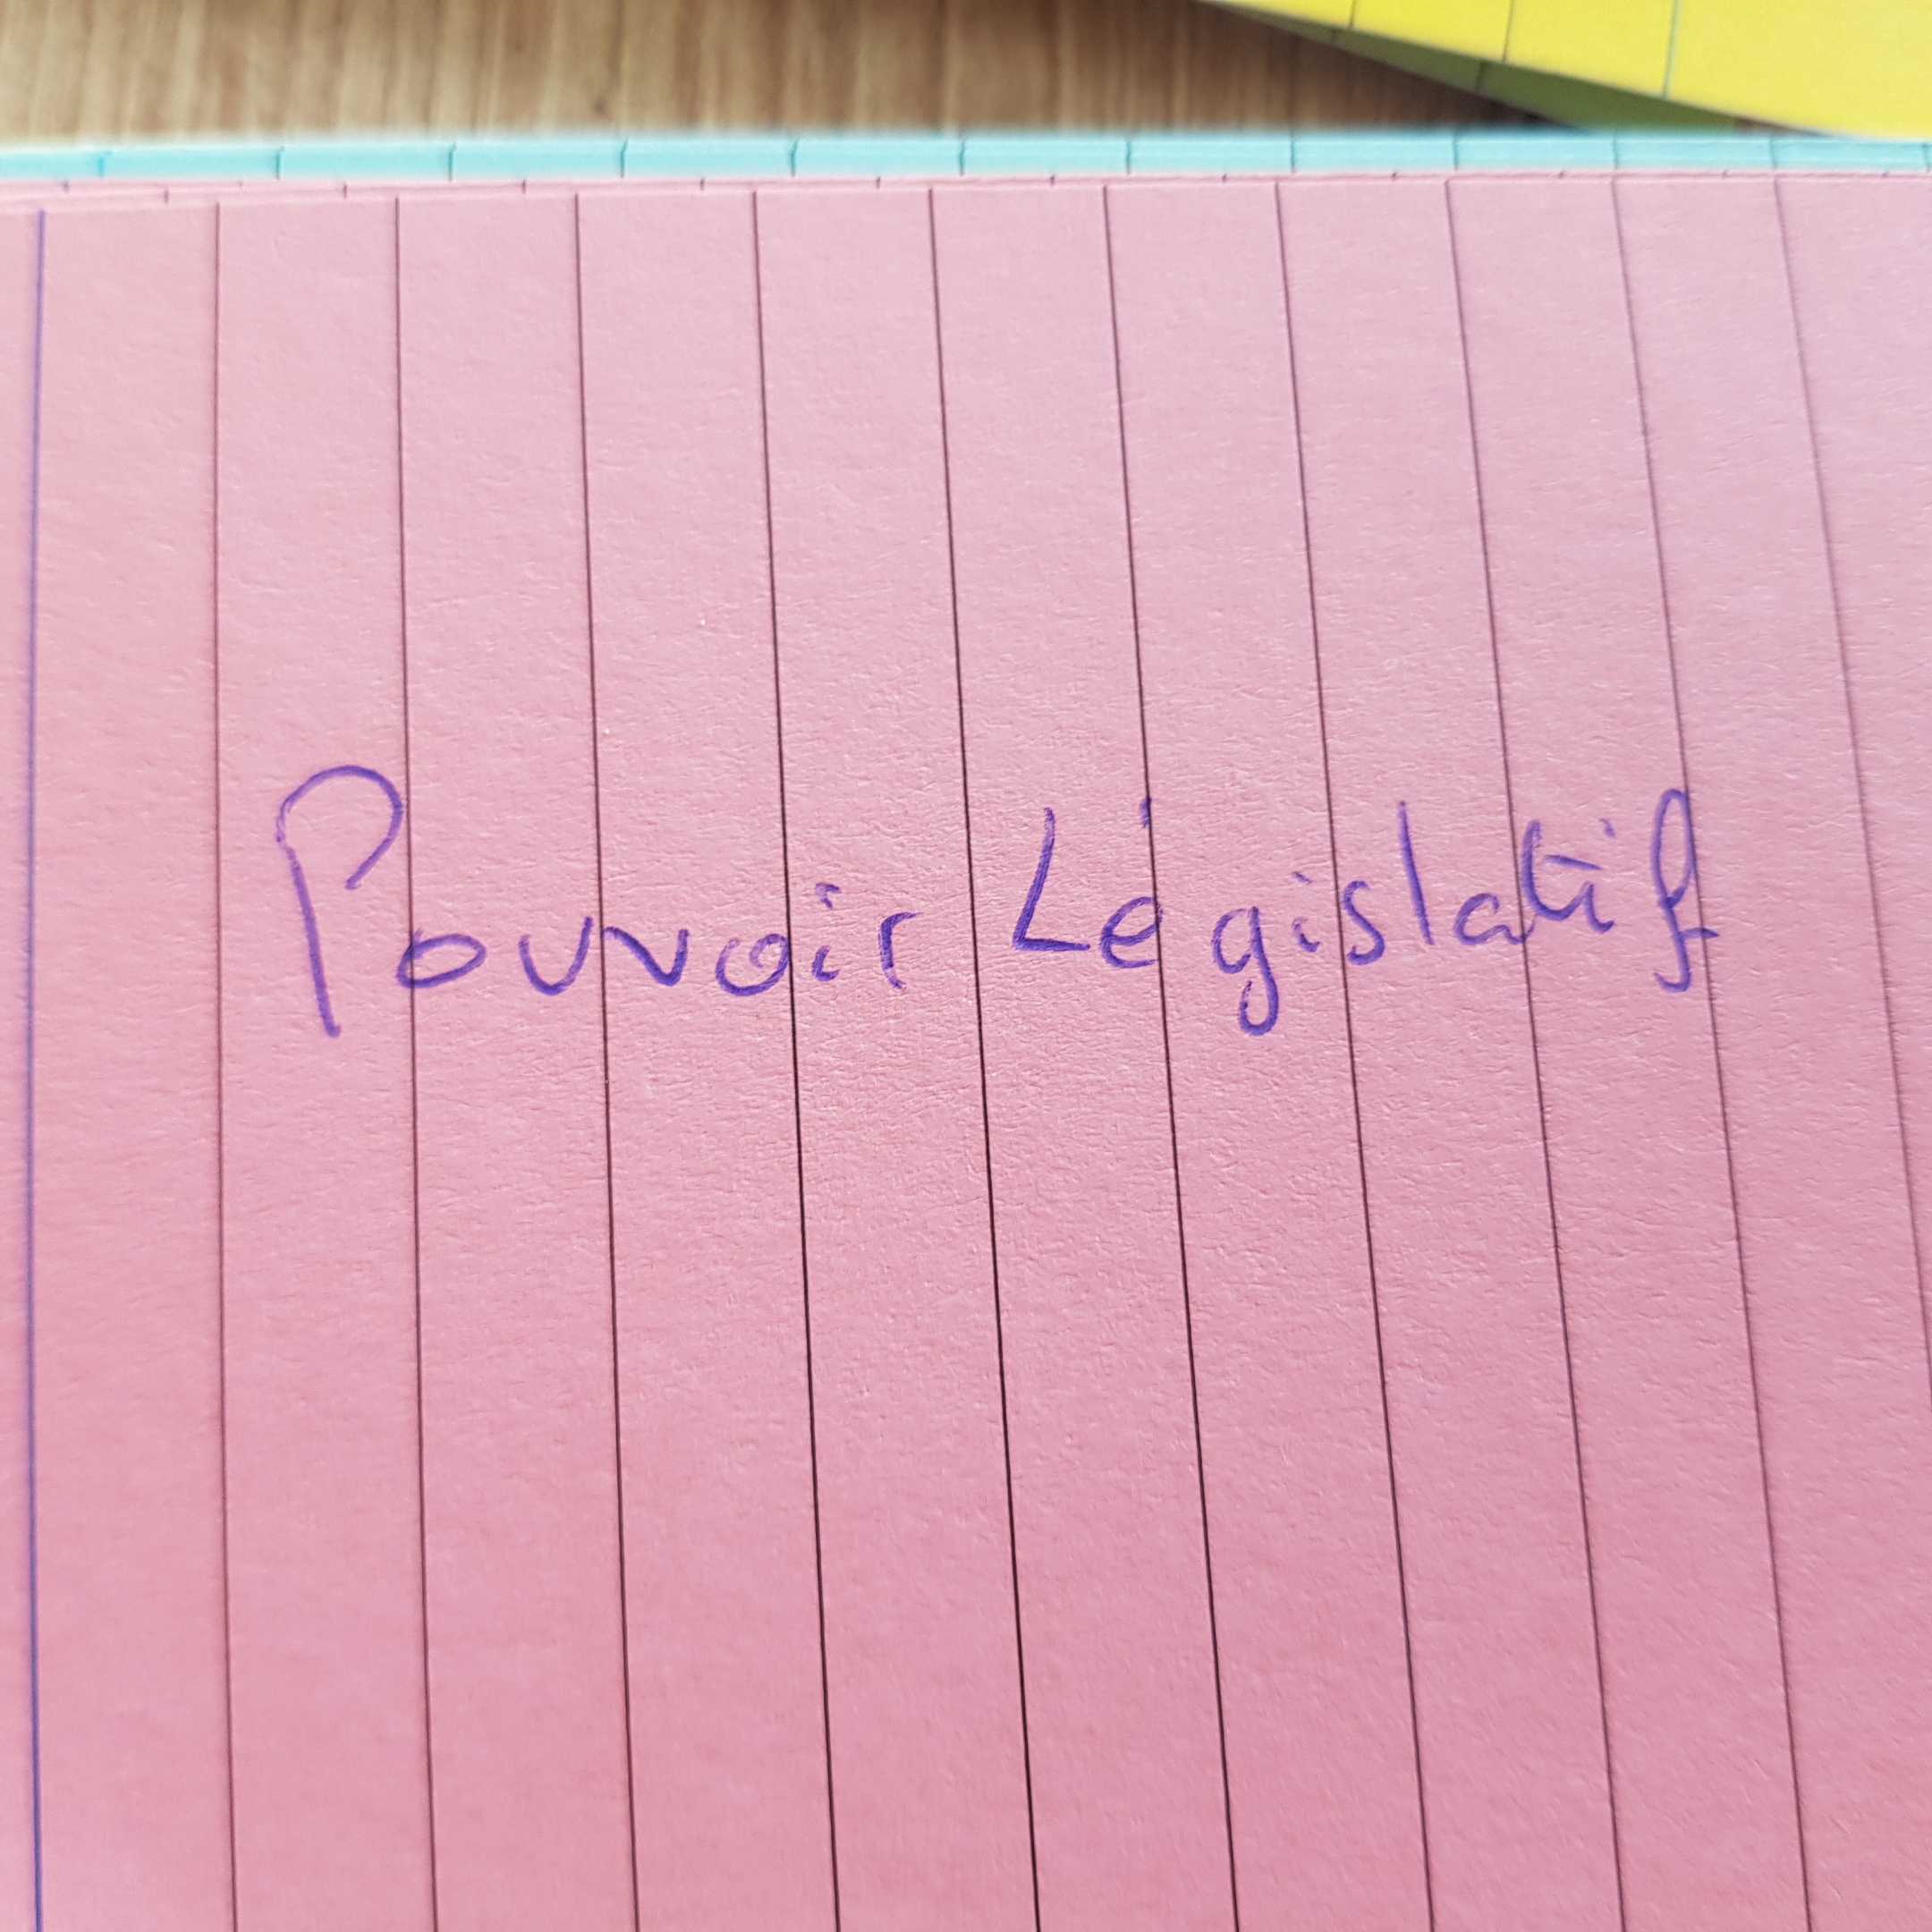 Pouvoir Législatif